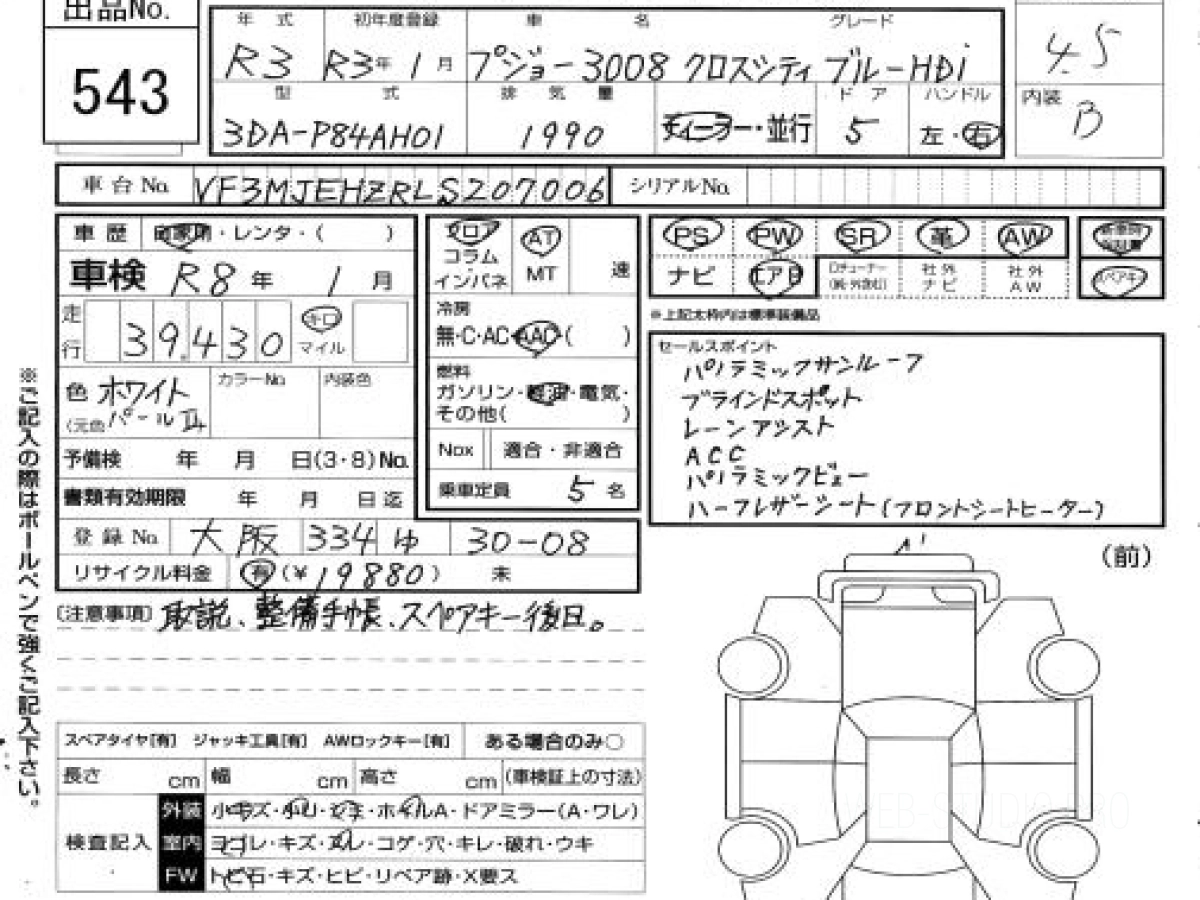 出品No.
543
年 式 初年度登録 車 名 グレード
R3 R3年1月 プジョー3008 クロスシティ ブルーHDi
4.5
型 式 排 気 量 ドア ハンドル
3DA-P84AH01 1990 ディーラー・並行 5 左・右
内装
B
車台No. VF3MJEHZRLS207006 シリアルNo.
車歴 自家用・レンタ・( )
車検 R8年 1月
走行 39,430 キロ マイル
色 ホワイト カラーNo. 内装色
(元色 パールⅡ
予備検 年 月 日(3・8)No.
書類有効期限 年 月 日迄
登録No. 大阪 334 ゆ 30-08
リサイクル料金 有(¥19880) 未
フロア
コラム
インパネ
AT
MT
速
冷房
無・C・AC・AAC( )
燃料
ガソリン・軽油・電気・
その他( )
Nox 適合・非適合
乗車定員 5名
PS PW SR 革 AW
ナビ エアB 社外ナビ 社外AW
スペアキー
※上記太枠内は標準装備品
セールスポイント
パノラミックサンルーフ
ブラインドスポット
レーンアシスト
ACC
パノラミックビュー
ハーフレザーシート(フロントシートヒーター)
(前)
(注意事項) 取説、整備手帳、スペアキー後日。
スペアタイヤ[有] ジャッキ工具[有] AWロックキー[有] ある場合のみ○
長さ cm 幅 cm 高さ cm (車検証上の寸法)
検査記入
外装 小キズ・小凹・シミ・ホイルA・ドアミラー(A・ワレ)
室内 ヨゴレ・キズ・スレ・コゲ・穴・キレ・破れ・ウキ
FW トビ石・キズ・ヒビ・リペア跡・X要ス
※ご記入の際はボールペンで強くご記入下さい。